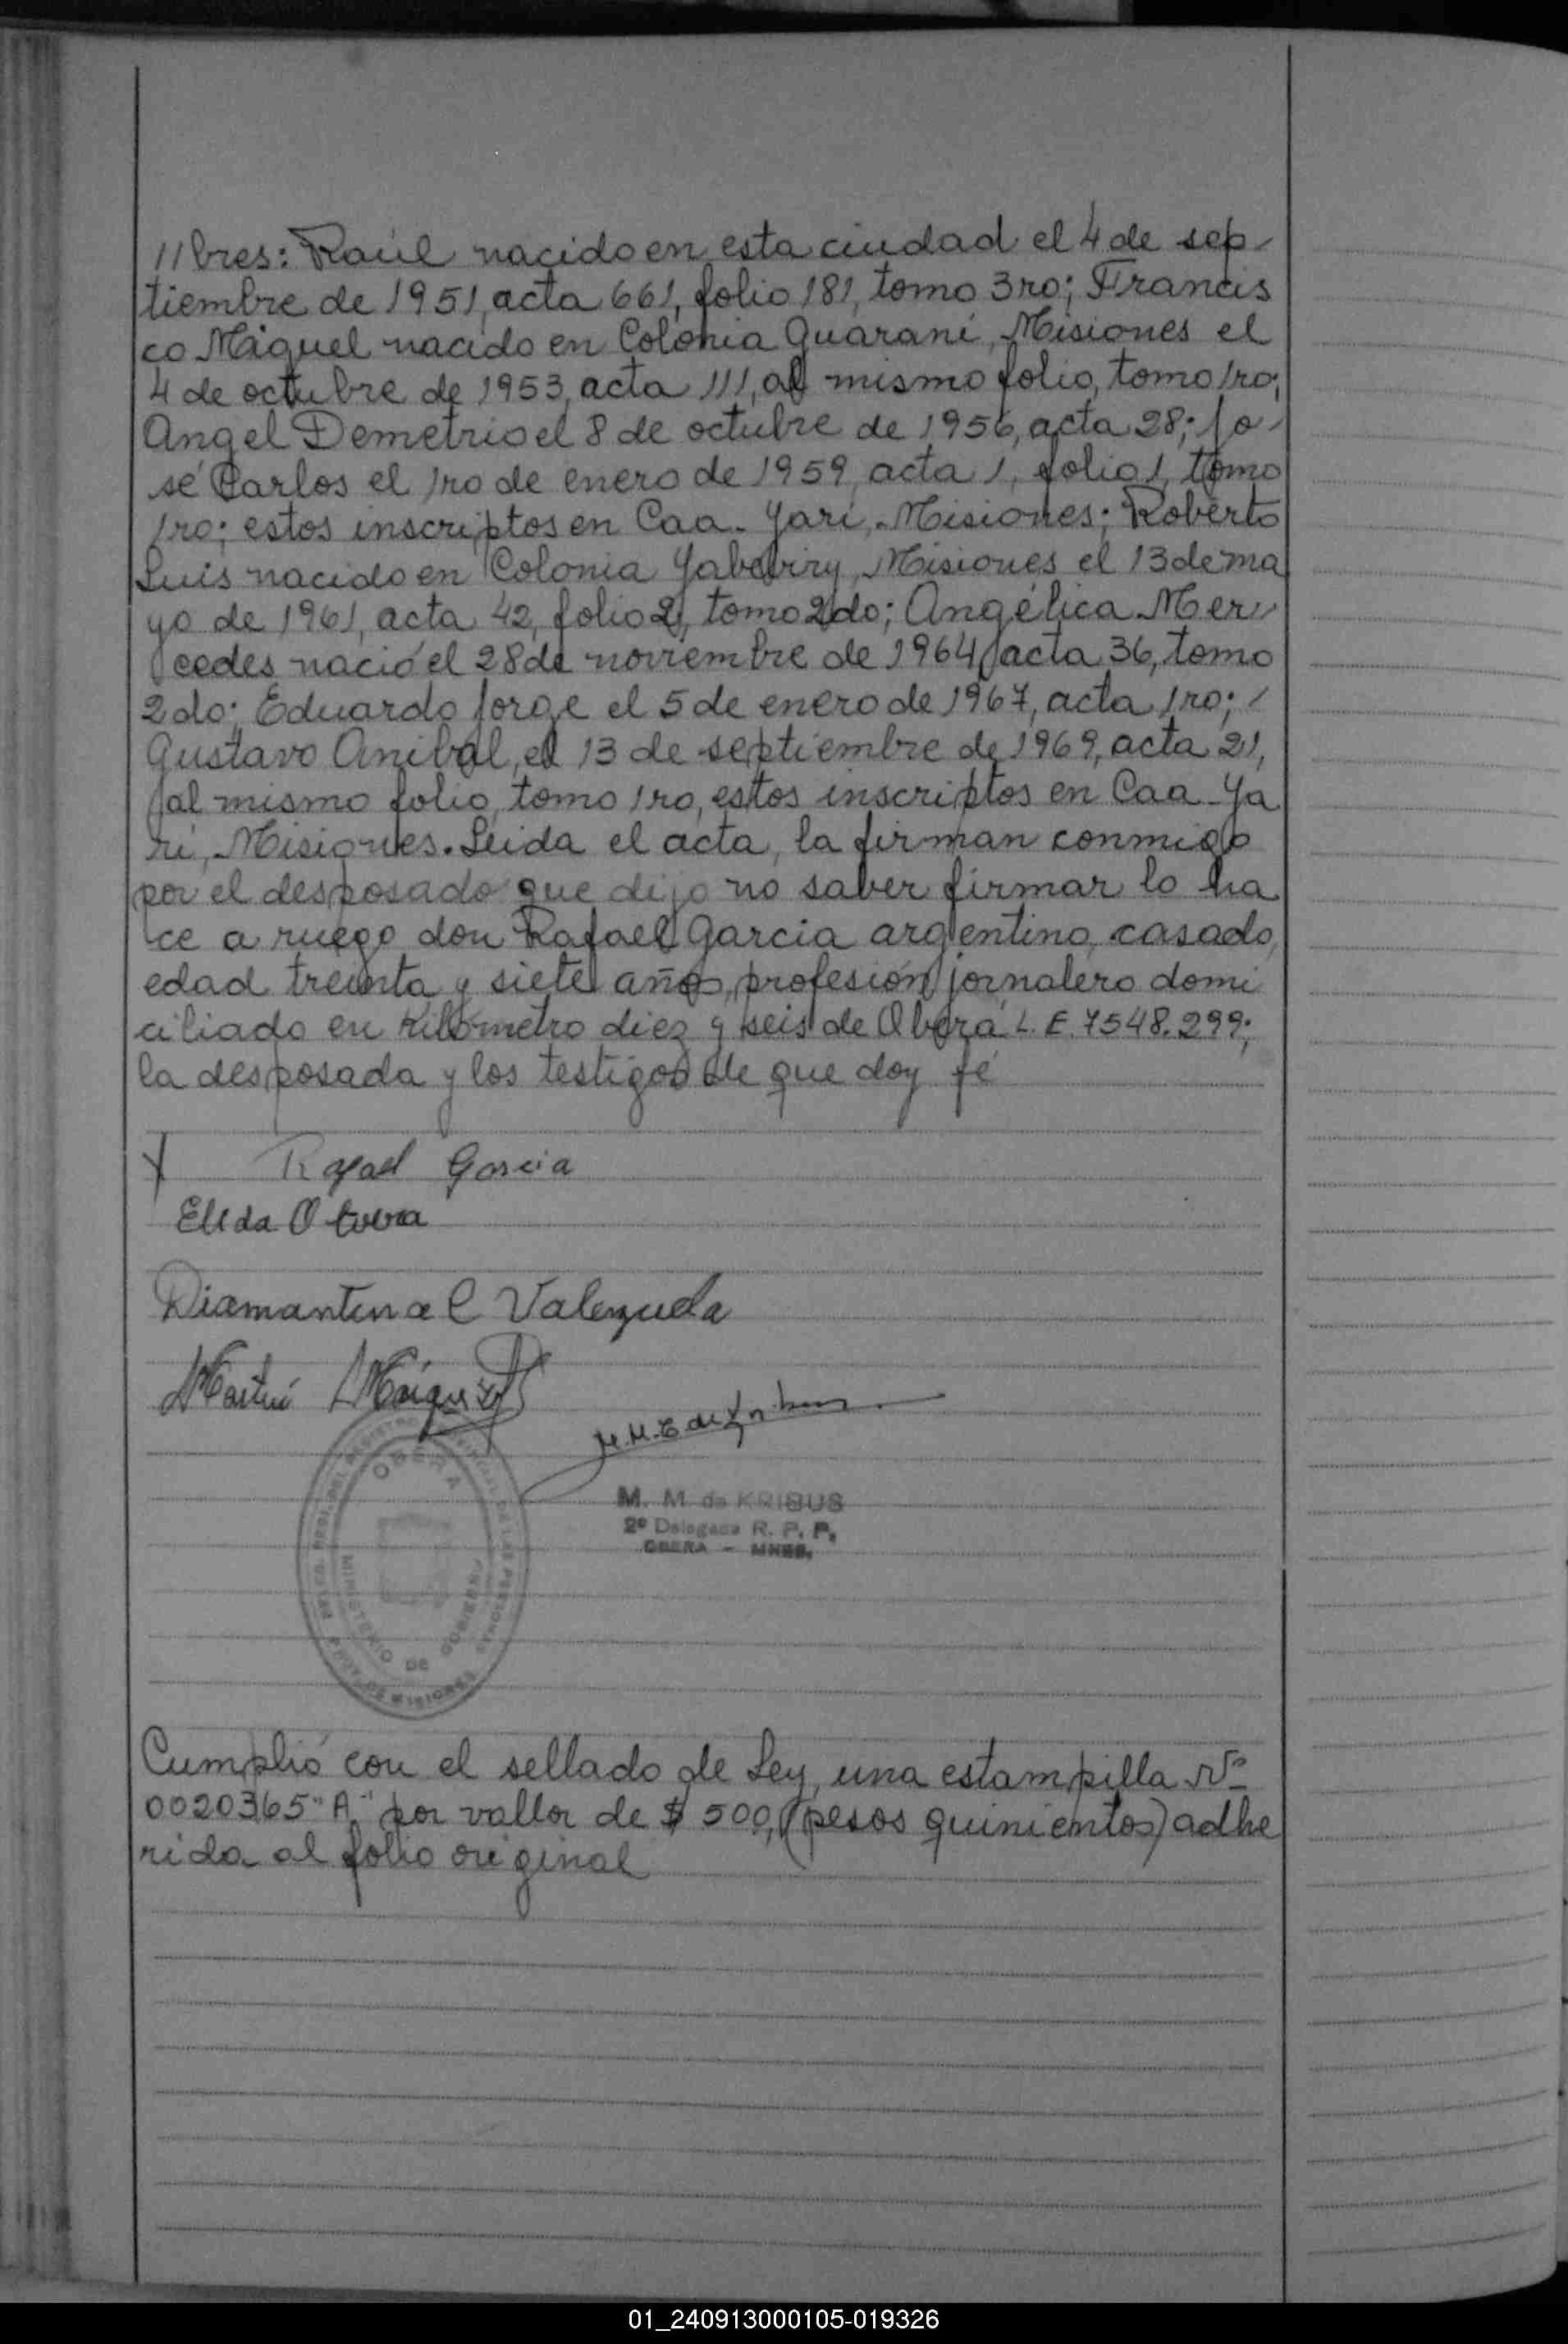 //bres: Raúl nacido en esta ciudad el 4 de sep-
tiembre de 1951, acta 661, folio 181, tomo 3ro; Francis
co Miguel nacido en Colonia Guaraní, Misiones el
4 de octubre de 1953, acta 111, al mismo folio, tomo 1ro;
Angel Demetrio el 8 de octubre de 1956, acta 28; Jo-
sé Carlos el 1ro de enero de 1959, acta 1, folio 1, tomo
1ro; estos inscriptos en Caa-Yarí, Misiones; Roberto
Luis nacido en Colonia Yabebiry, Misiones el 13 de ma
yo de 1961, acta 42, folio 21, tomo 2do; Angélica Mer-
cedes nació el 28 de noviembre de 1964, acta 36, tomo
2do; Eduardo Jorge el 5 de enero de 1967, acta 1ro; -
Gustavo Anibal, el 13 de septiembre de 1969, acta 21,
al mismo folio, tomo 1ro, estos inscriptos en Caa-Ya
rí, Misiones. Leida el acta, la firman conmigo
por el desposado que dijo no saber firmar lo ha
ce a ruego don Rafael Garcia argentino, casado,
edad treinta y siete años, profesión jornalero domi
ciliado en Kilómetro diez y seis de Oberá L.E. 7548.299;
la desposada y los testigos de que doy fé
Rafael Garcia
Elida Olivera
Diamantina C Valenzuela
Martín
M. M. de KRIBUS
2º Delegada R. P. P.
OBERA - MNES.
OBERA
MINISTERIO DE GOBIERNO
Cumplió con el sellado de Ley, una estampilla Nº
0020365 "A" por vallor de $ 500, (pesos quinientos) adhe
rida al folio original
01_240913000105-019326